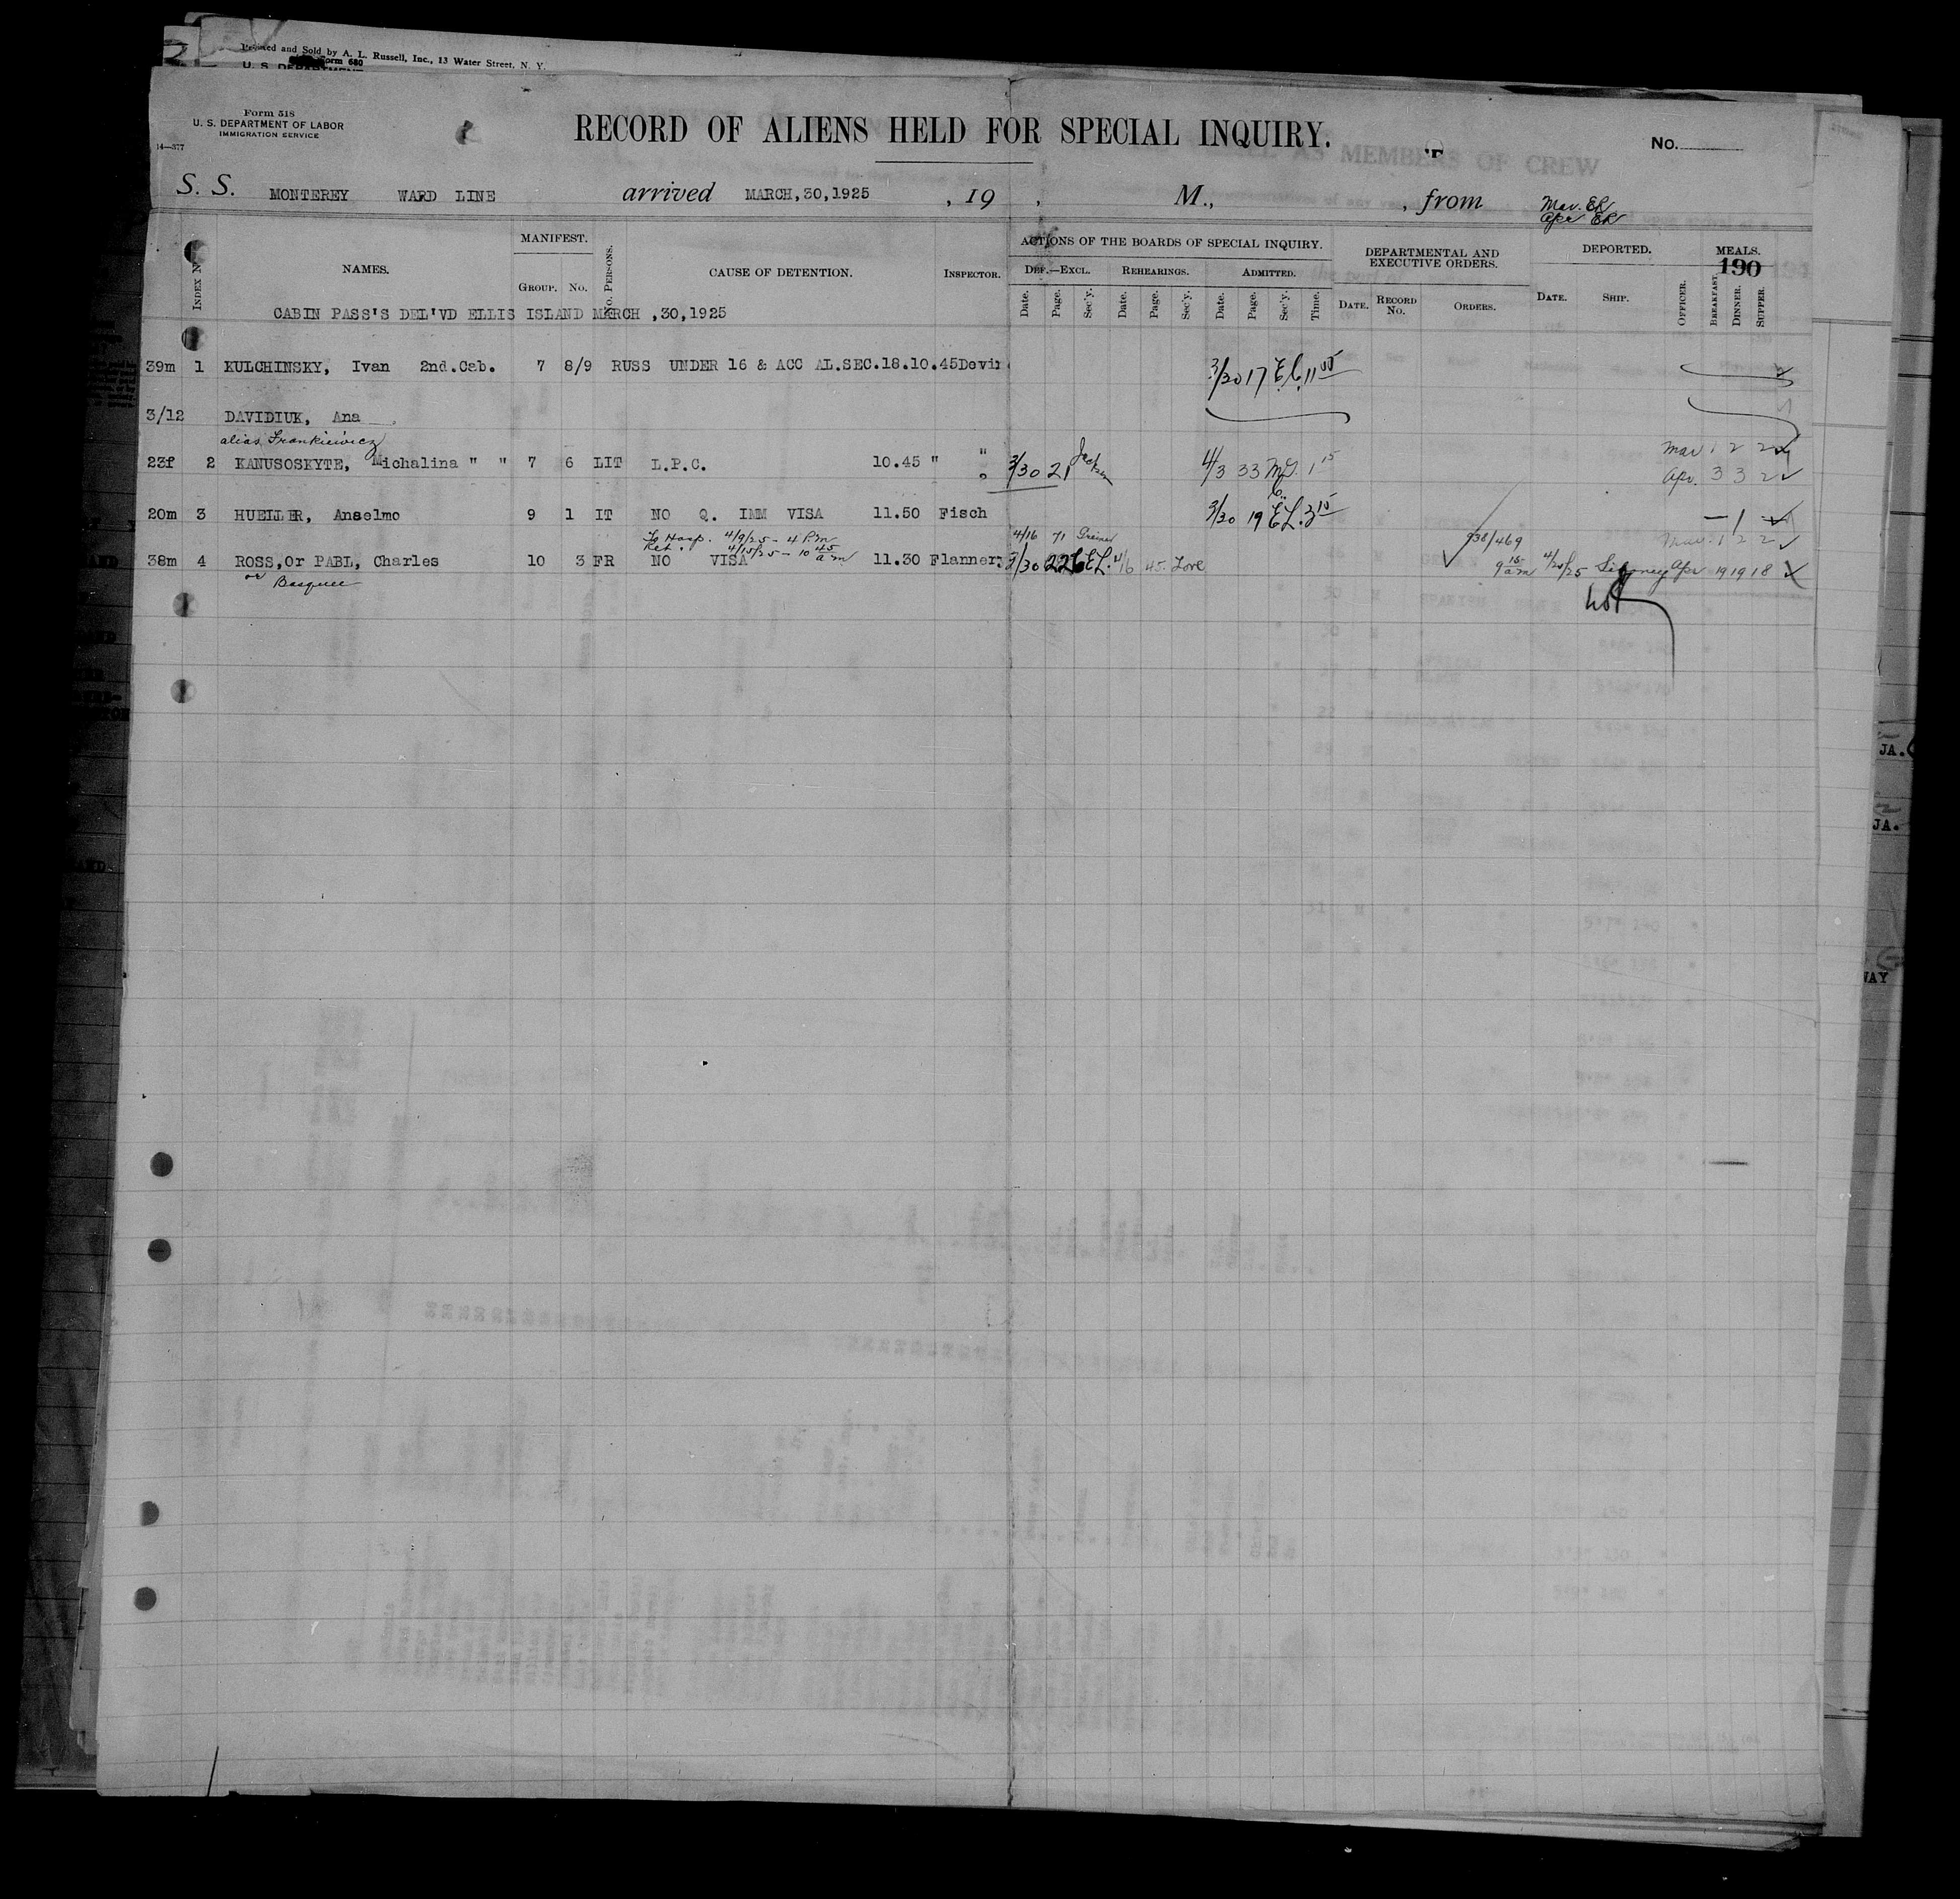 Printed and Sold by A. L. Russell, Inc., 13 Water Street, N. Y.
Form 680
U. S. DEPARTMENT
Form 518
U. S. DEPARTMENT OF LABOR
IMMIGRATION SERVICE
14—377
RECORD OF ALIENS HELD FOR SPECIAL INQUIRY.
No.
S. S. MONTEREY WARD LINE arrived MARCH,30,1925 , 19 , M., , from
Mar. ER
Apr ER
INDEX No
NAMES.
MANIFEST.
GROUP. No.
No. PERSONS.
CAUSE OF DETENTION.
INSPECTOR.
ACTIONS OF THE BOARDS OF SPECIAL INQUIRY.
DEF.—EXCL. REHEARINGS. ADMITTED.
Date. Page. Sec'y. Date. Page. Sec'y. Date. Page. Sec'y. Time.
DEPARTMENTAL AND EXECUTIVE ORDERS.
DATE. RECORD No. ORDERS.
DEPORTED.
DATE. SHIP. OFFICER.
MEALS.
190
BREAKFAST. DINNER. SUPPER.
CABIN PASS'S DEL'VD ELLIS ISLAND MARCH ,30,1925
39m 1 KULCHINSKY, Ivan 2nd.Cab. 7 8/9 RUSS UNDER 16 & ACC AL.SEC.18.10.45 Devin 3/30 17 E.C. 11 00
3/12 DAVIDIUK, Ana
alias Frankiewicz
Mar 1 2 2
23f 2 KANUSOSKYTE, Michalina " " 7 6 LIT L.P.C. 10.45 " " 3/30 21 Jackson 4/3 33 1 15 Apr. 3 3 2
20m 3 HUEILER, Anselmo 9 1 IT NO Q. IMM VISA 11.50 Fisch 3/30 19 E.L. 3 15 — 1 —
To Hosp. 4/9/25 - 4 P.m
Ret. 4/15/25 - 10 45 a m
4/16 71 Greiner
938/469
Mar. 1 2 2
38m 4 ROSS, or PABL, Charles 10 3 FR NO VISA 11.30 Flannery 3/30 226 E.L. 4/16 45 Love 9 15 am 4/20/25 Siboney Apr 19 19 18
or Basquee